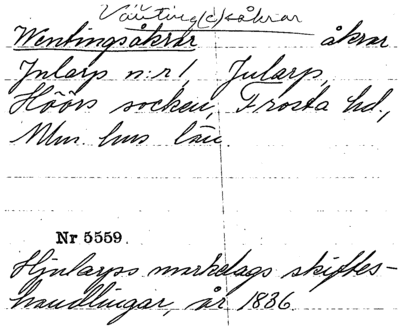 Vänting(s)åkrar
Wentingsåkrar åkrar
Jularp n:r 1, Jularp,
Höörs socken, Frosta hd.,
Mlm hus län.
Nr 5559.
Hjularps markelags skiftes-
handlingar, år 1836.